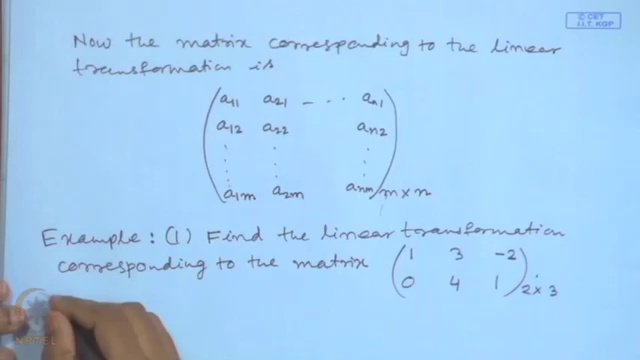 © CET
I.I.T. KGP
Now the matrix corresponding to the linear
transformation is
a11 a21 - ... an1
a12 a22 an2
a1m a2m anm m×n
Example: (1) Find the linear transformation
corresponding to the matrix
1 3 -2
0 4 1 2×3
NPTEL